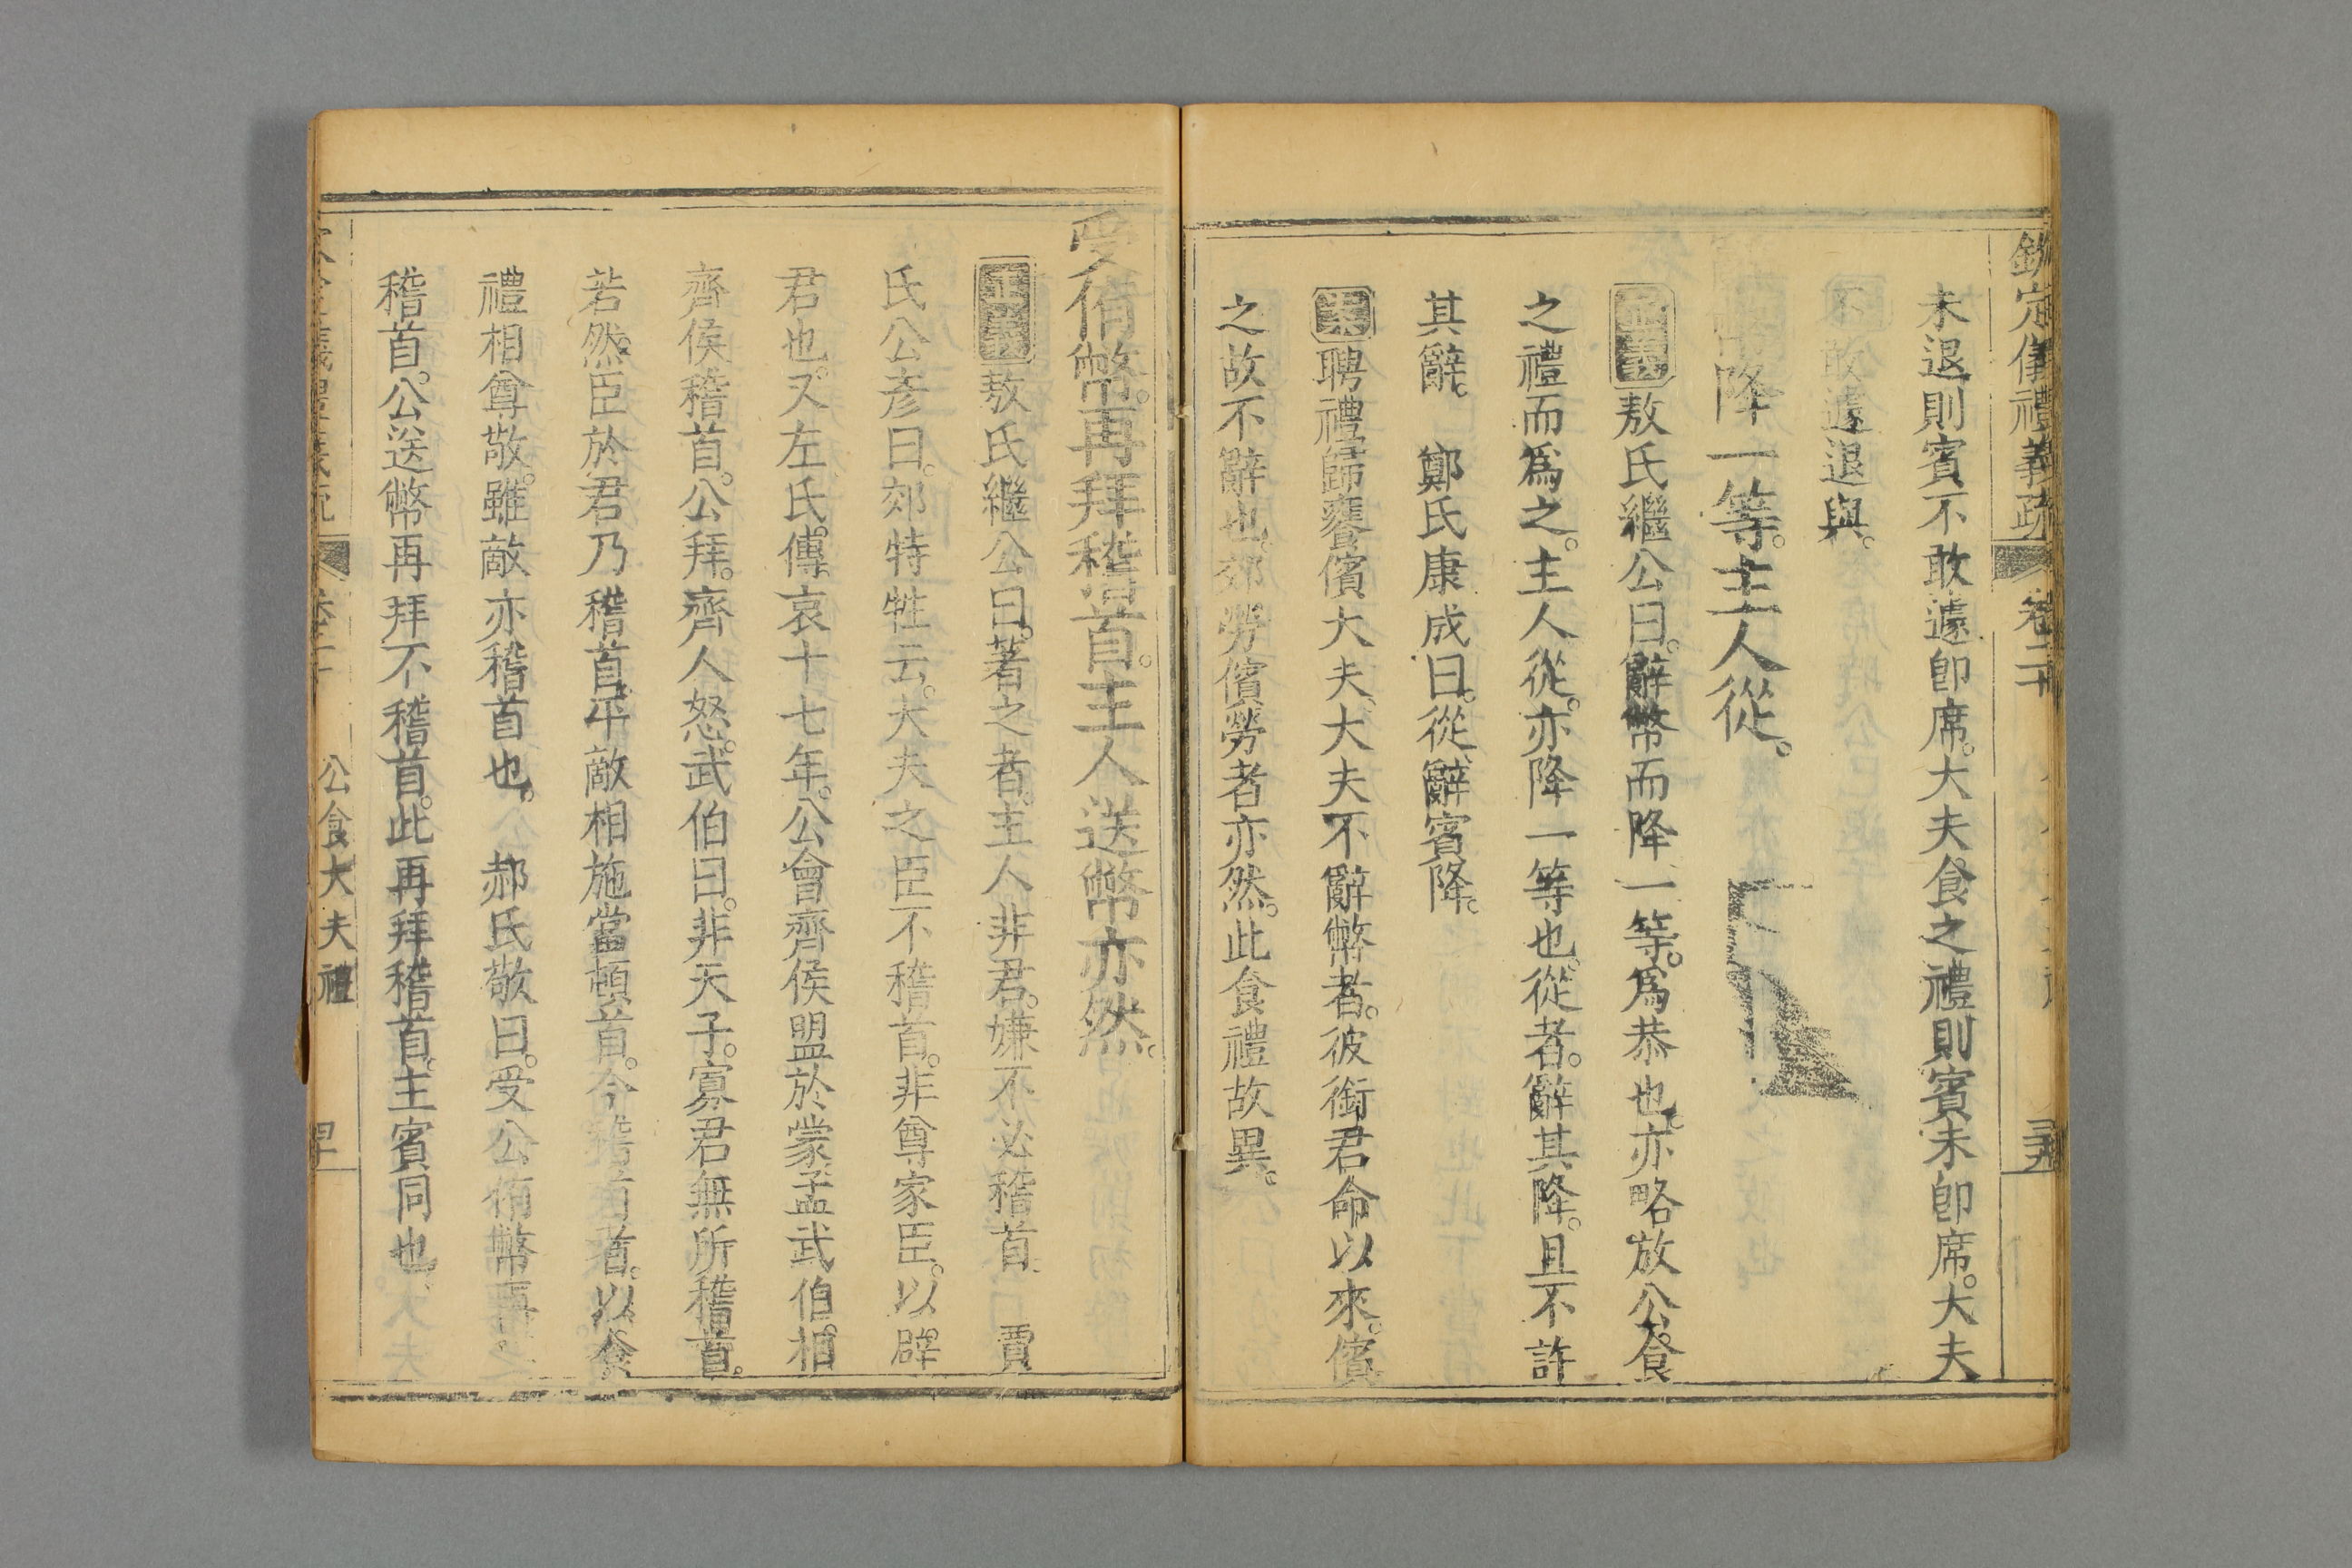 欽定儀禮義疏 卷二十
未退則賓不敢遽卽席。大夫食之禮則賓未卽席。大夫
不敢遽退與。
降一等。主人從。
正義敖氏繼公曰。辭幣而降一等。爲恭也。亦略放公食
之禮而爲之。主人從。亦降一等也。從者。辭其降。且不許
其辭。 鄭氏康成曰。從辭賓降。
案聘禮歸饔儐大夫、大夫不辭幣者。彼銜君命以來。儐
之故不辭也。郊勞儐勞者亦然。此食禮故異。
受侑幣。再拜稽首。主人送幣亦然。
正義敖氏繼公曰。著之者。主人非君。嫌不必稽首 賈
氏公彥曰。郊特牲云。大夫之臣不稽首。非尊家臣。以辟
君也。又左氏傳。哀十七年。公會齊侯盟於蒙孟武伯。相
齊侯稽首。公拜。齊人怒。武伯曰。非天子。寡君無所稽首。
若然。臣於君乃稽首。平敵相施當頓首。今稽首者。以食
禮相尊敬。雖敵亦稽首也。 郝氏敬曰。受公侑幣再拜
稽首。公送幣再拜不稽首。此再拜稽首。主賓同也
公食大夫禮